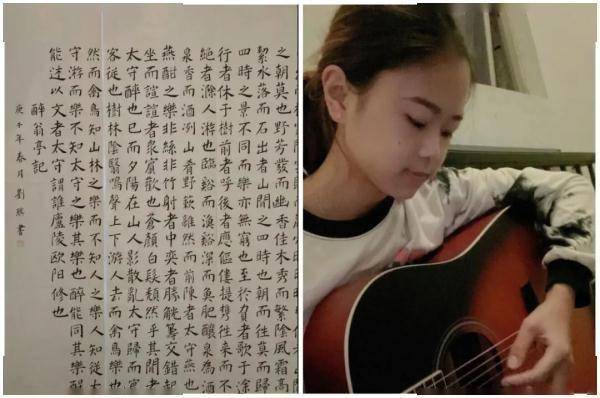 之朝莫也野芳發而幽香佳木秀而繁陰風霜高
絜水落而石出者山間之四時也朝而往莫而歸
四時之景不同而樂亦無窮也至於負者歌于途
行者休于樹前者呼後者應傴僂提攜往來而不
絕者滁人游也臨谿而漁谿深而魚肥釀泉為酒
泉香而酒洌山肴野蔌雜然而前陳者太守燕也
燕酣之樂非絲非竹射者中奕者勝觥籌交錯起
坐而諠譁者衆賓歡也蒼顏白髮頹然乎其間者
太守醉也已而夕陽在山人影散亂太守歸而賓
客從也樹林陰翳鳴聲上下游人去而禽鳥樂也
然而禽鳥知山林之樂而不知人之樂人知從太
守游而樂不知太守之樂其樂也醉能同其樂醒
能述以文者太守謂誰廬陵欧阳修也
醉翁亭記
年春月劉書